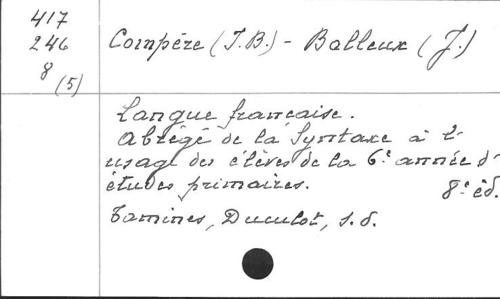 417
246
8
(5)
Compère (J.B.) - Balleux (J.)
Langue française.
Abrégé de la Syntaxe à l'
usage des élèves de la 6e année d'
études primaires. 8e éd.
Tamines, Duculot, s.d.